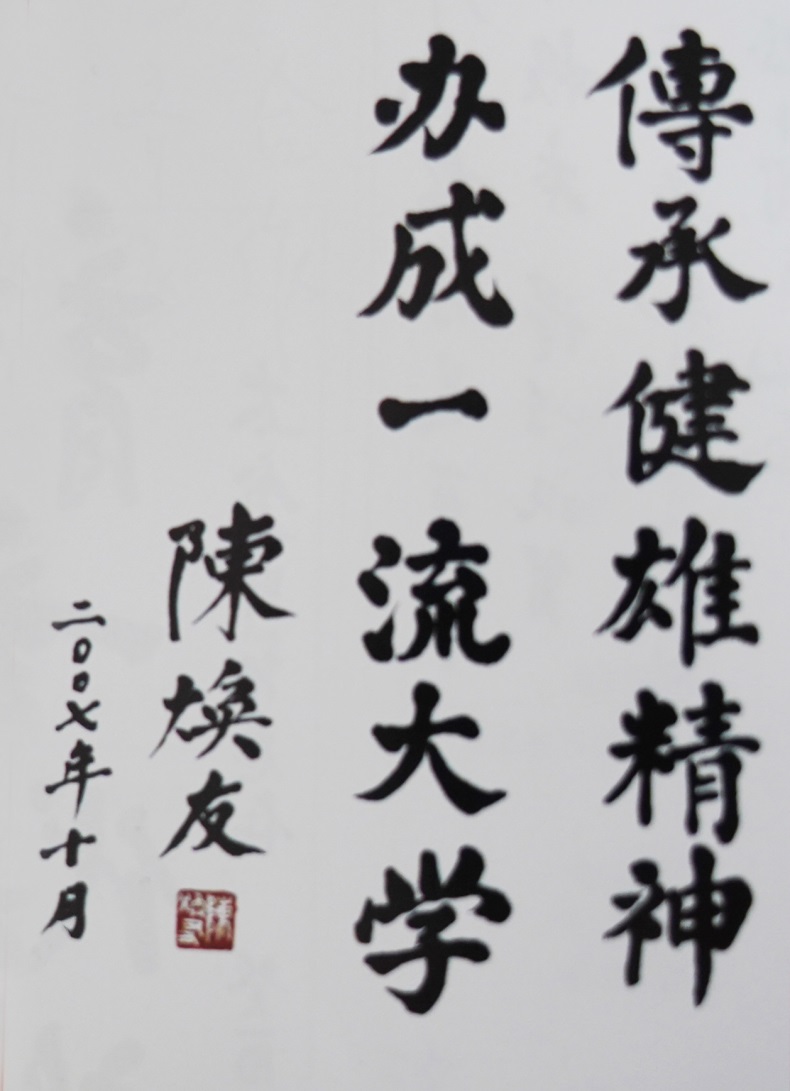 傳承健雄精神
办成一流大学
陳焕友
二〇〇七年十月